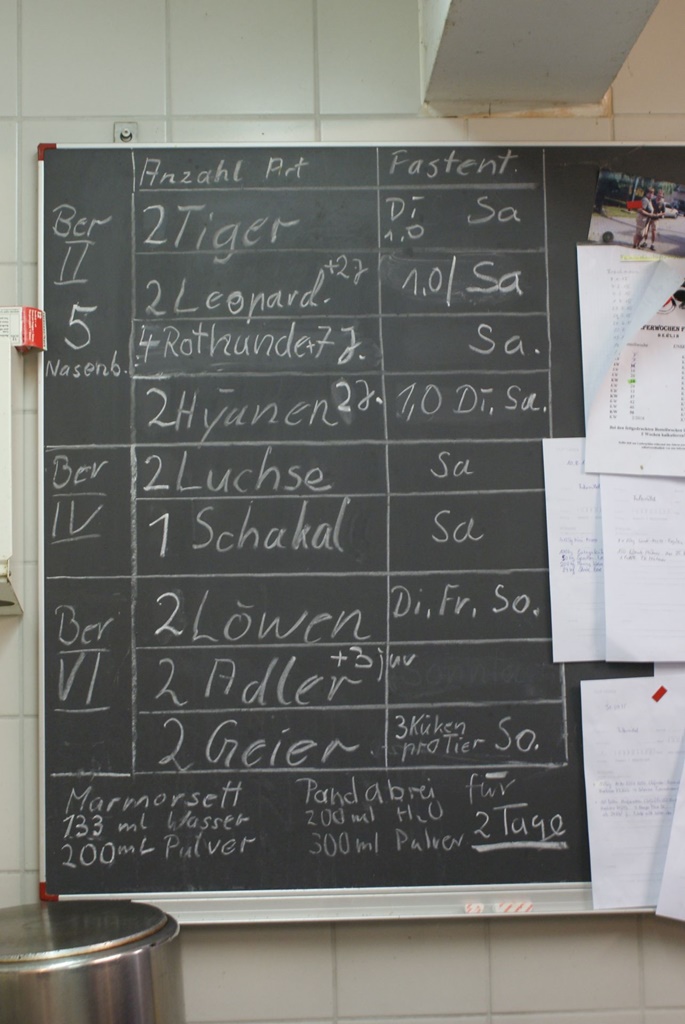 Anzahl Art Fastent.
Ber II 2 Tiger Di 1,0 Sa
2 Leopard. +2J 1,0/ Sa
5 Nasenb. 4 Rothunde+7 J. Sa.
2 Hyänen 2J. 1,0 Di, Sa.
Ber IV 2 Luchse Sa
1 Schakal Sa
Ber VI 2 Löwen Di, Fr, So.
2 Adler +3 juv
2 Geier 3 Küken pro Tier So.
Marmorsett Pandabrei für
133 ml Wasser 200 ml H2O 2 Tage
200 mL Pulver 300 ml Pulver